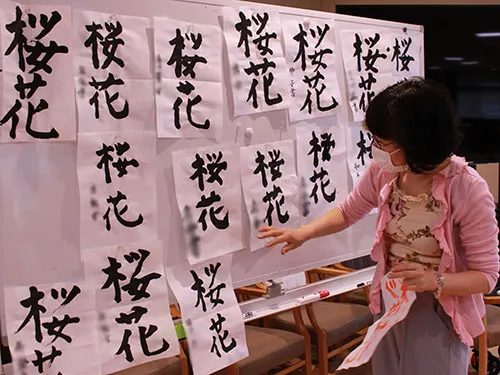 桜花
桜花
桜花
桜花
桜花
桜花
桜
桜花
桜花
桜花
桜花
桜花
桜花
桜花